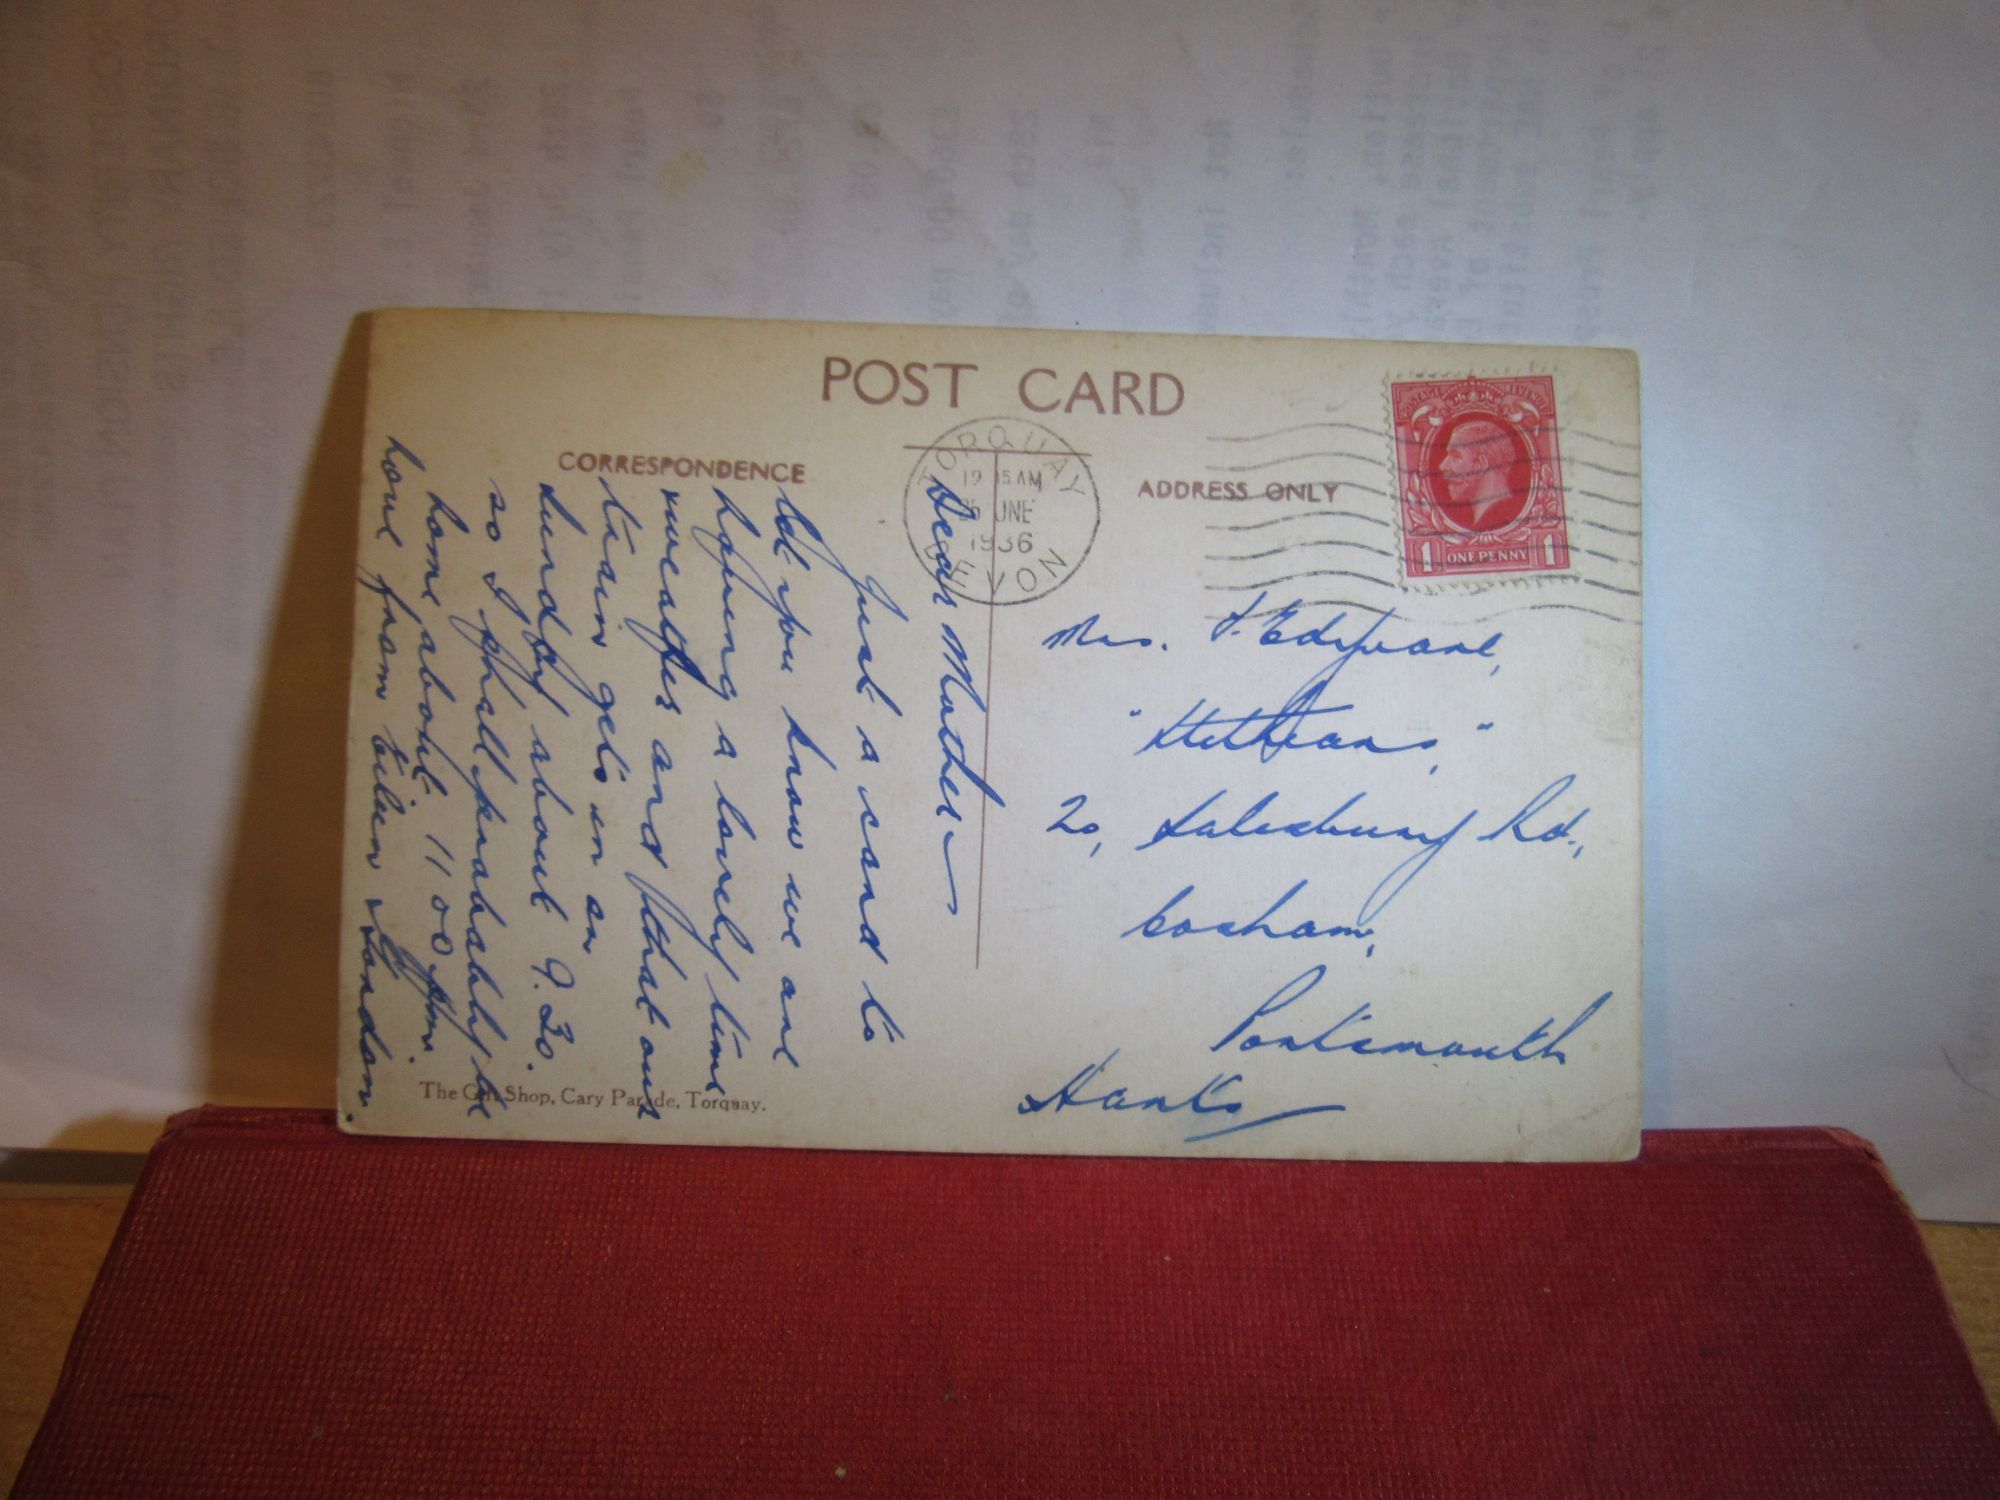 POST CARD
CORRESPONDENCE
ADDRESS ONLY
TORQUAY
DEVON
JUNE
1936
POSTAGE REVENUE
1 ONE PENNY 1
Dear Mother
Just a card to
let you know we are
having a lovely time
ourselves and that our
train gets in on
Sunday about 9.30.
so I shall probably be
home about 11.00 pm.
love from Eileen & Gordon.
Mrs.
20, Salisbury Rd.,
Cosham,
Portsmouth
Hants
The Gift Shop, Cary Parade, Torquay.